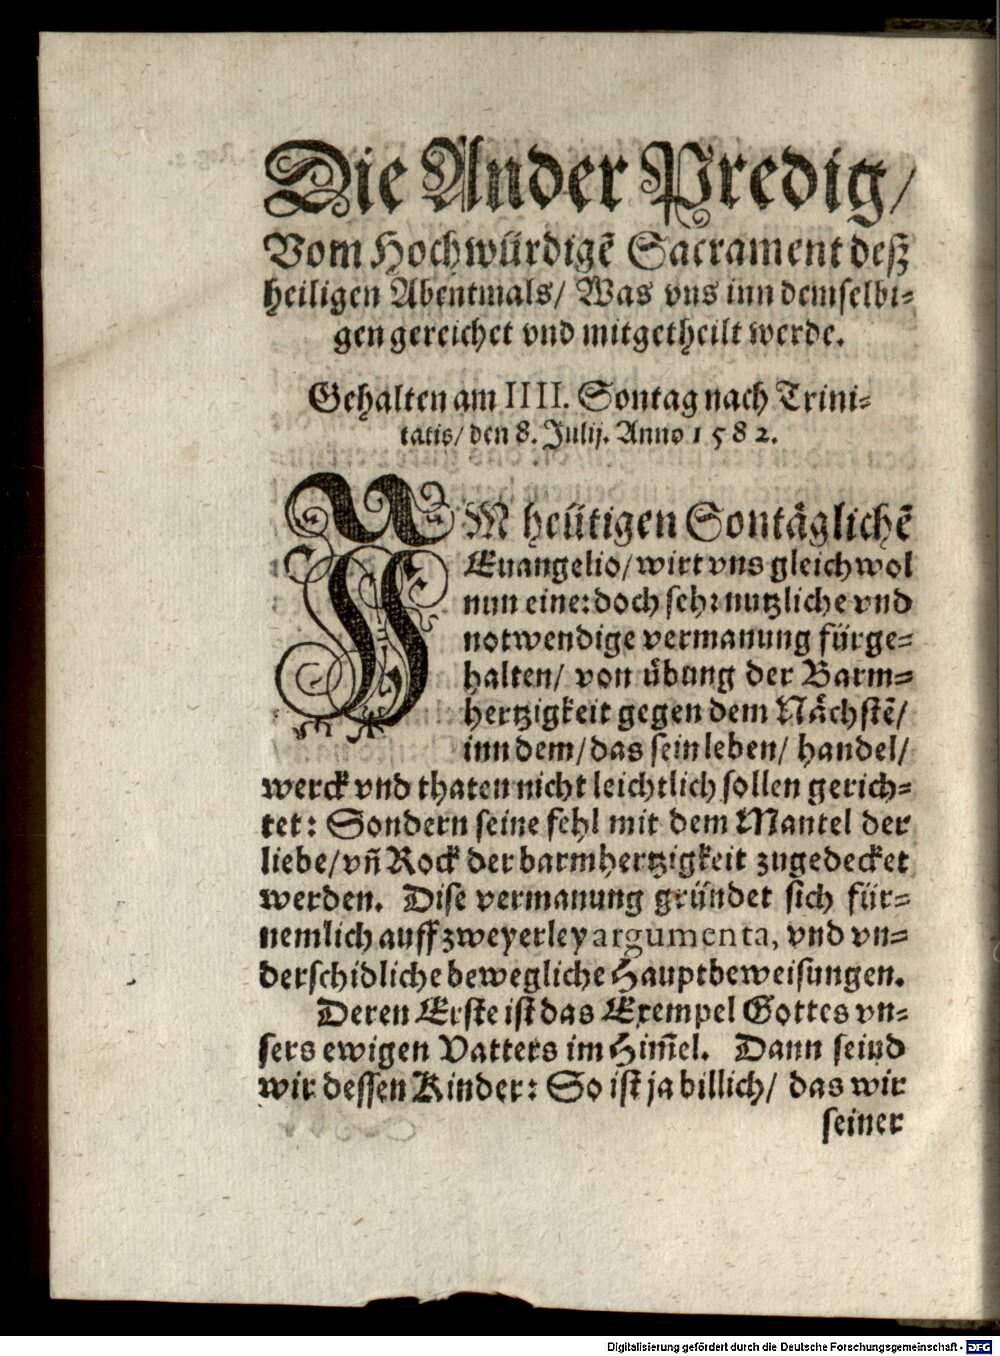 Die Ander Predig/
Vom Hochwürdigē Sacrament deß
heiligen Abentmals/ Was vns inn demselbi⸗
gen gereichet vnd mitgetheilt werde.
Gehalten am IIII. Sontag nach Trini⸗
tatis/ den 8. Julij. Anno 1582.
IM heütigen Sontäglichē
Euangelio/ wirt vns gleichwol
nun eine: doch sehr nutzliche vnd
notwendige vermanung fürge⸗
halten/ von übung der Barm⸗
hertzigkeit gegen dem Nächstē/
inn dem/ das sein leben/ handel/
werck vnd thaten nicht leichtlich sollen gerich⸗
tet: Sondern seine fehl mit dem Mantel der
liebe/ vñ Rock der barmhertzigkeit zugedecket
werden. Dise vermanung gründet sich für⸗
nemlich auff zweyerley argumenta, vnd vn⸗
derschidliche bewegliche Hauptbeweisungen.
Deren Erste ist das Exempel Gottes vn⸗
sers ewigen Vatters im Him̄el. Dann seind
wir dessen Kinder: So ist ja billich/ das wir
seiner
Digitalisierung gefördert durch die Deutsche Forschungsgemeinschaft - DFG